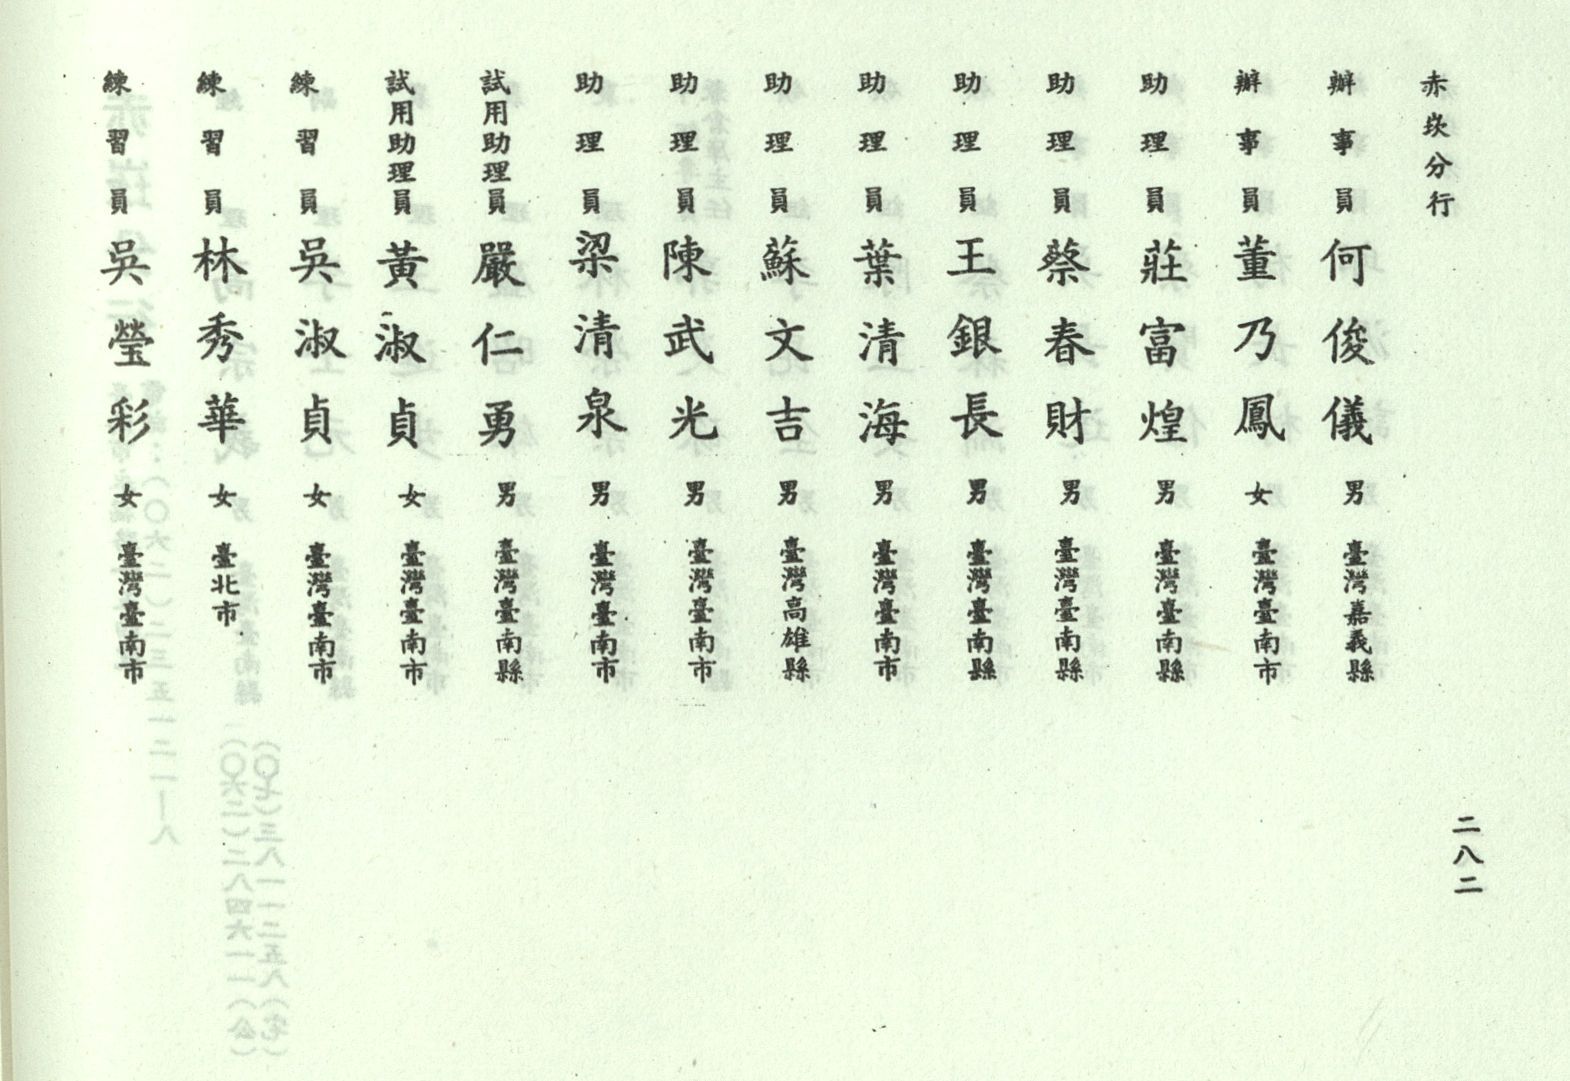 赤崁分行
辦事員 何俊儀 男 臺灣嘉義縣
辦事員 董乃鳳 女 臺灣臺南市
助理員 莊富煌 男 臺灣臺南縣
助理員 蔡春財 男 臺灣臺南縣
助理員 王銀長 男 臺灣臺南縣
助理員 葉清海 男 臺灣臺南市
助理員 蘇文吉 男 臺灣高雄縣
助理員 陳武光 男 臺灣臺南市
助理員 梁清泉 男 臺灣臺南市
試用助理員 嚴仁勇 男 臺灣臺南縣
試用助理員 黃淑貞 女 臺灣臺南市
練習員 吳淑貞 女 臺灣臺南市
練習員 林秀華 女 臺北市
練習員 吳瑩彩 女 臺灣臺南市
二八二